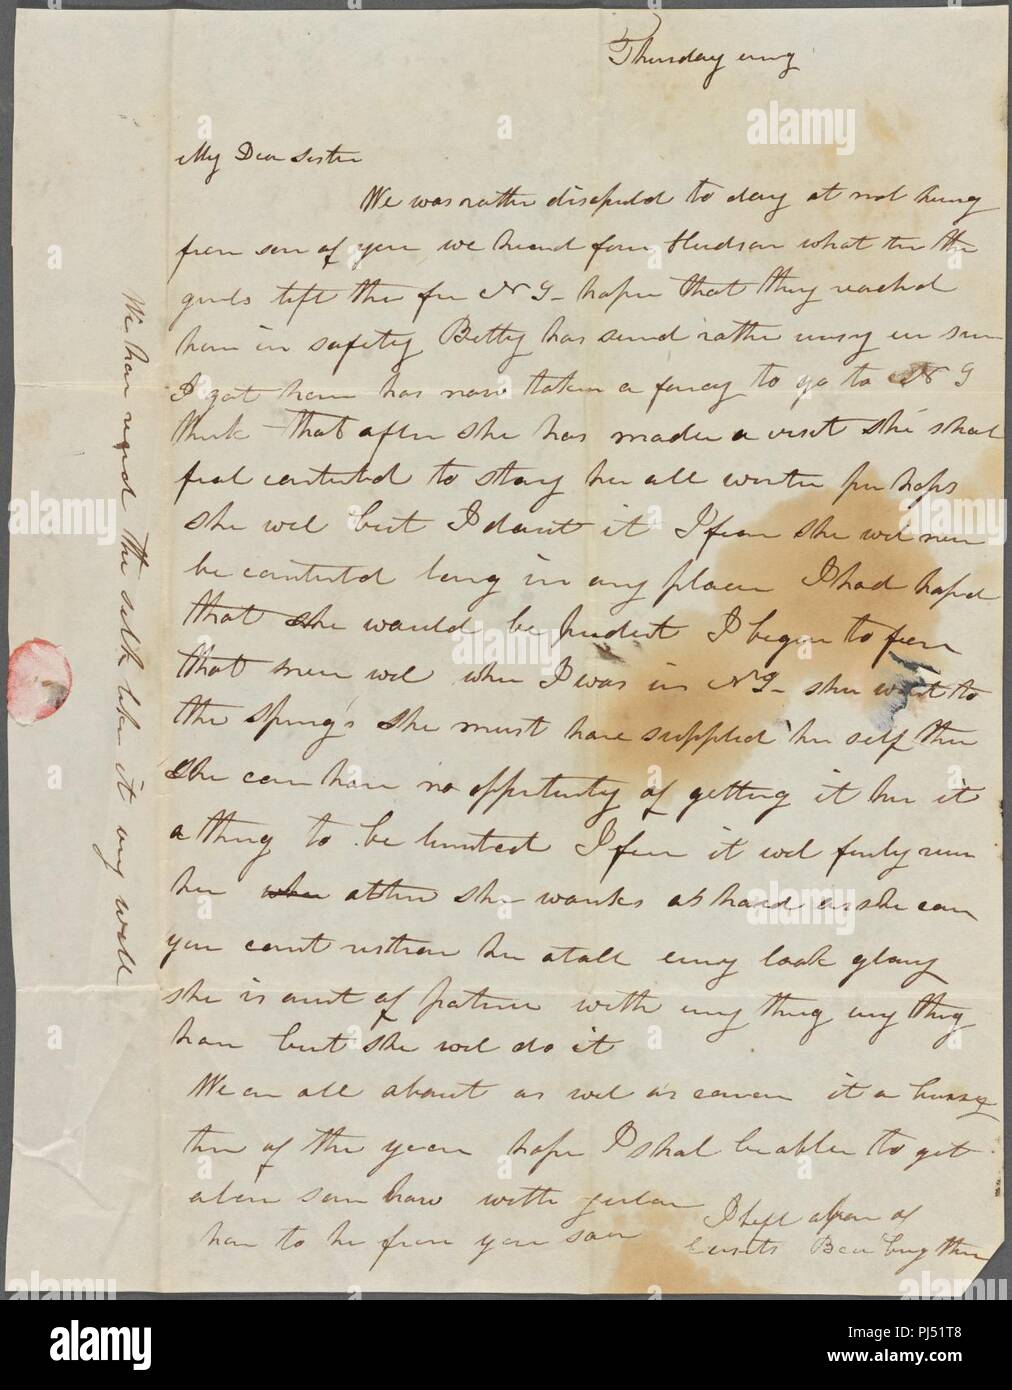 Thursday evng
My Dear Sister
We was rather disapntd to day at not hering
from son of you we heard from Hudson what tim the
gurls left the for N G - hope that they reached
hom in safety Betty has semd rather unesy ever sinc
I got hom has now taken a fancy to go to N G
think that after she has made a visit she shal
feal contented to stay her all winter per haps
she wil but I dout it I fear she wil never
be contented long in any place I had hoped
that she would be prudent I begin to fear
that never wil when I was in N G - she went to
the Spring's she must have supplied her self then
she can have no oppertunity of getting it her it
a thing to be lamented I fear it wil finly ruin
her when atten she works as hard as she can
you cant restran her atall evry look glass
she is out of patince with evry thing evry thing
hou but she wil do it
We ar all about as wel as comon it a bussy
tim of the year hope I shal be able to get
along som how with
hop to her from you soon
I left apron of
Bea bring them
We hav recevd the silk like it very well
alamy
alamy stock photo
PJ51T8
www.alamy.com